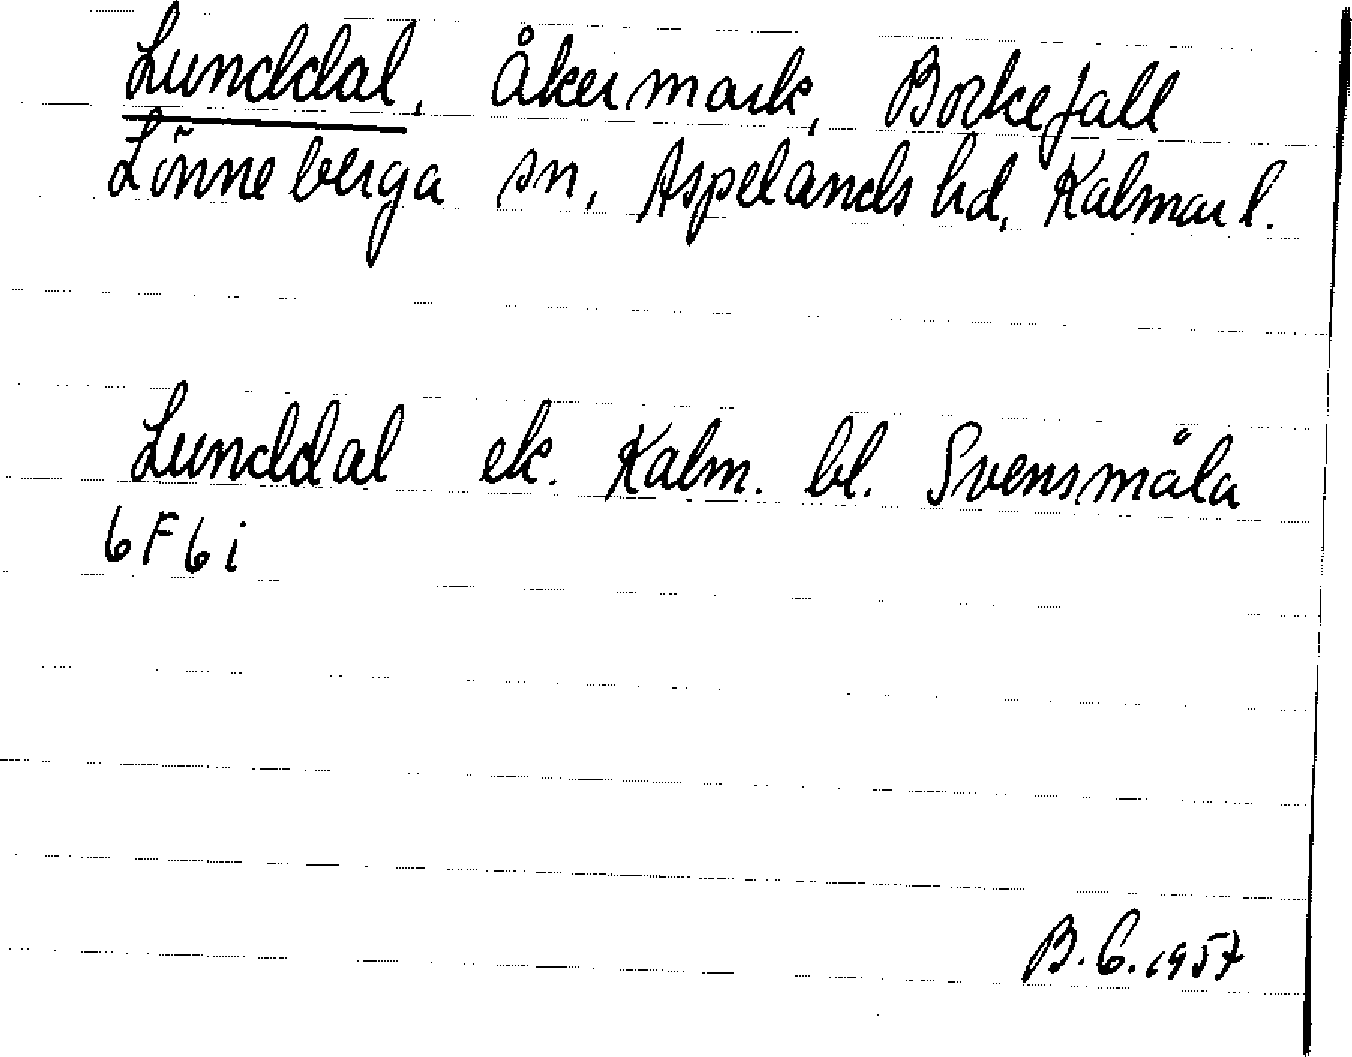 Lunddal, Åkermark, Borkefall
Lönneberga sn, Aspelands hd, Kalmar l.
Lunddal ek. Kalm. bl. Svensmåla
6F6i
B.G.1957